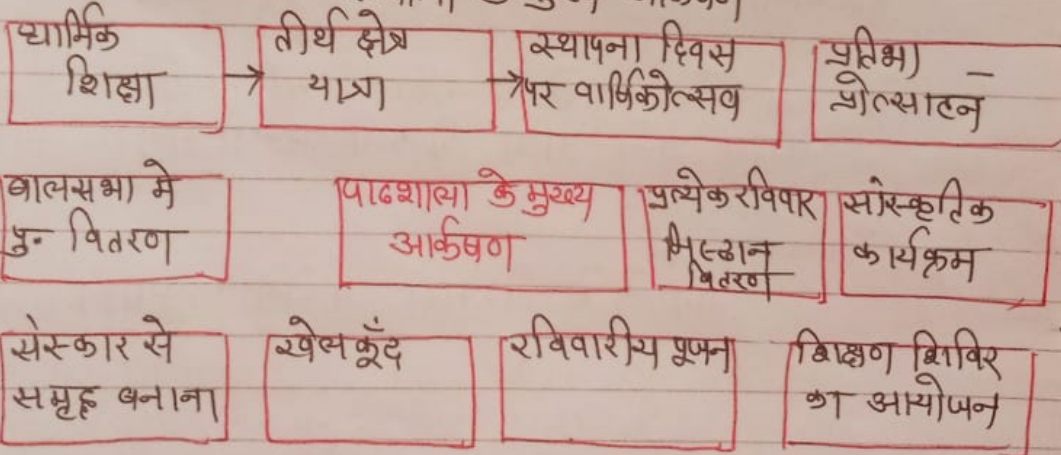 धार्मिक
शिक्षा
तीर्थ क्षेत्र
यात्रा
स्थापना दिवस
पर वार्षिकोत्सव
प्रतिभा
प्रोत्साहन
बालसभा मे
पु. वितरण
पाठशाला के मुख्य
आर्कषण
प्रत्येक रविवार
मिष्ठान
वितरण
सांस्कृतिक
कार्यक्रम
संस्कार से
समृद्ध बनाना
खेल कूँद
रविवारीय पूजन
शिक्षण शिविर
का आयोजन